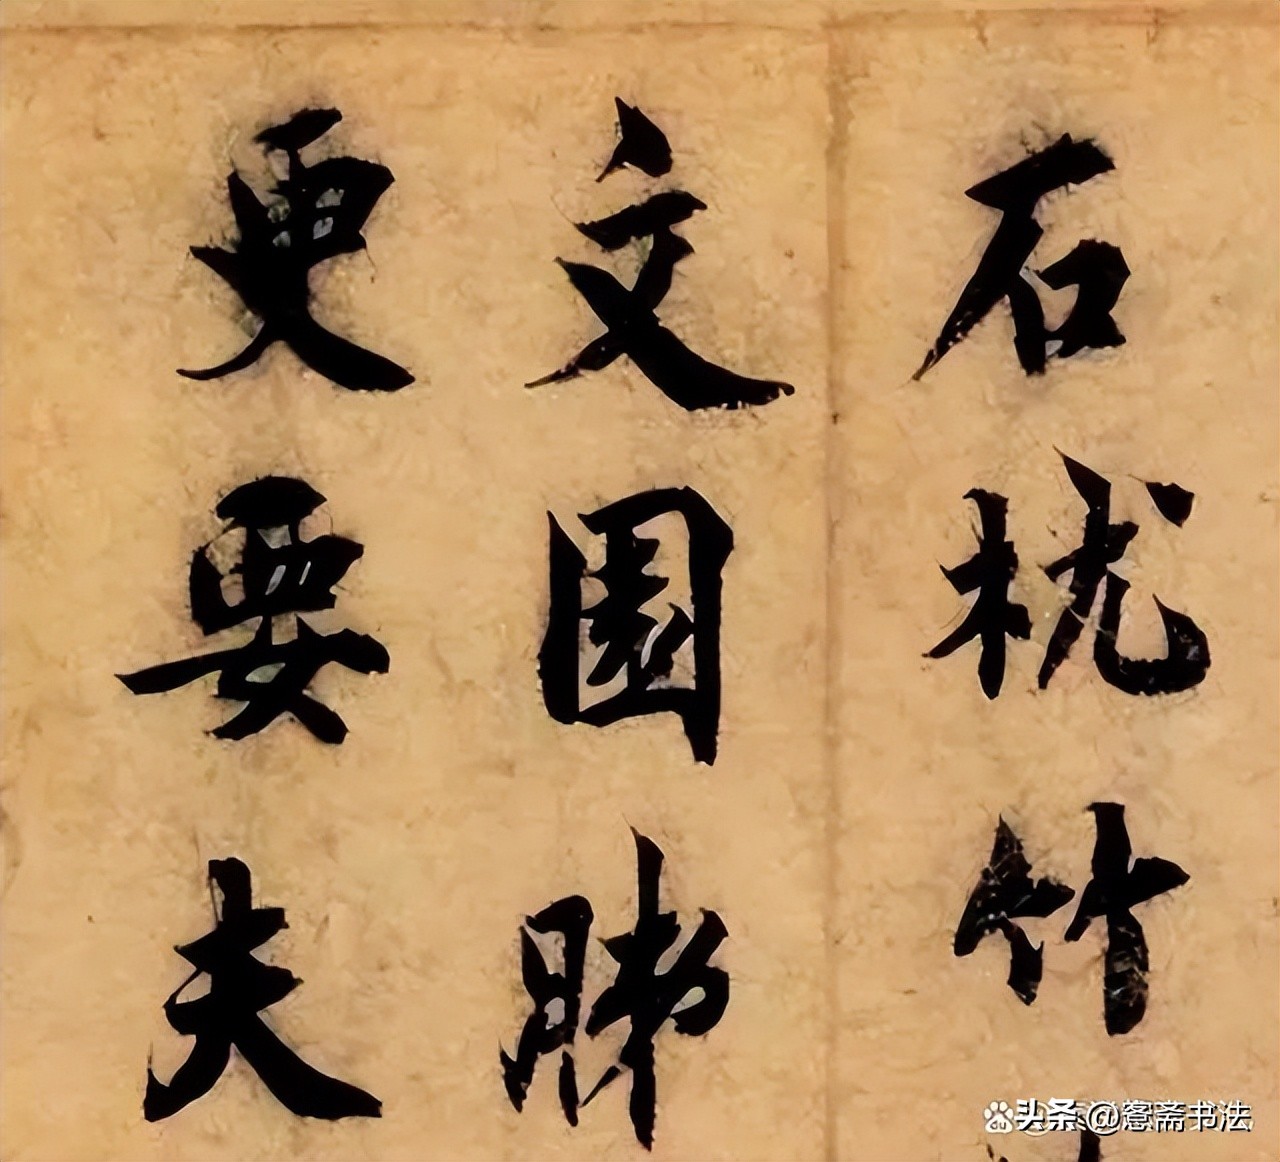 石枕竹
文園肺
更要夫
头条 @愙斋书法